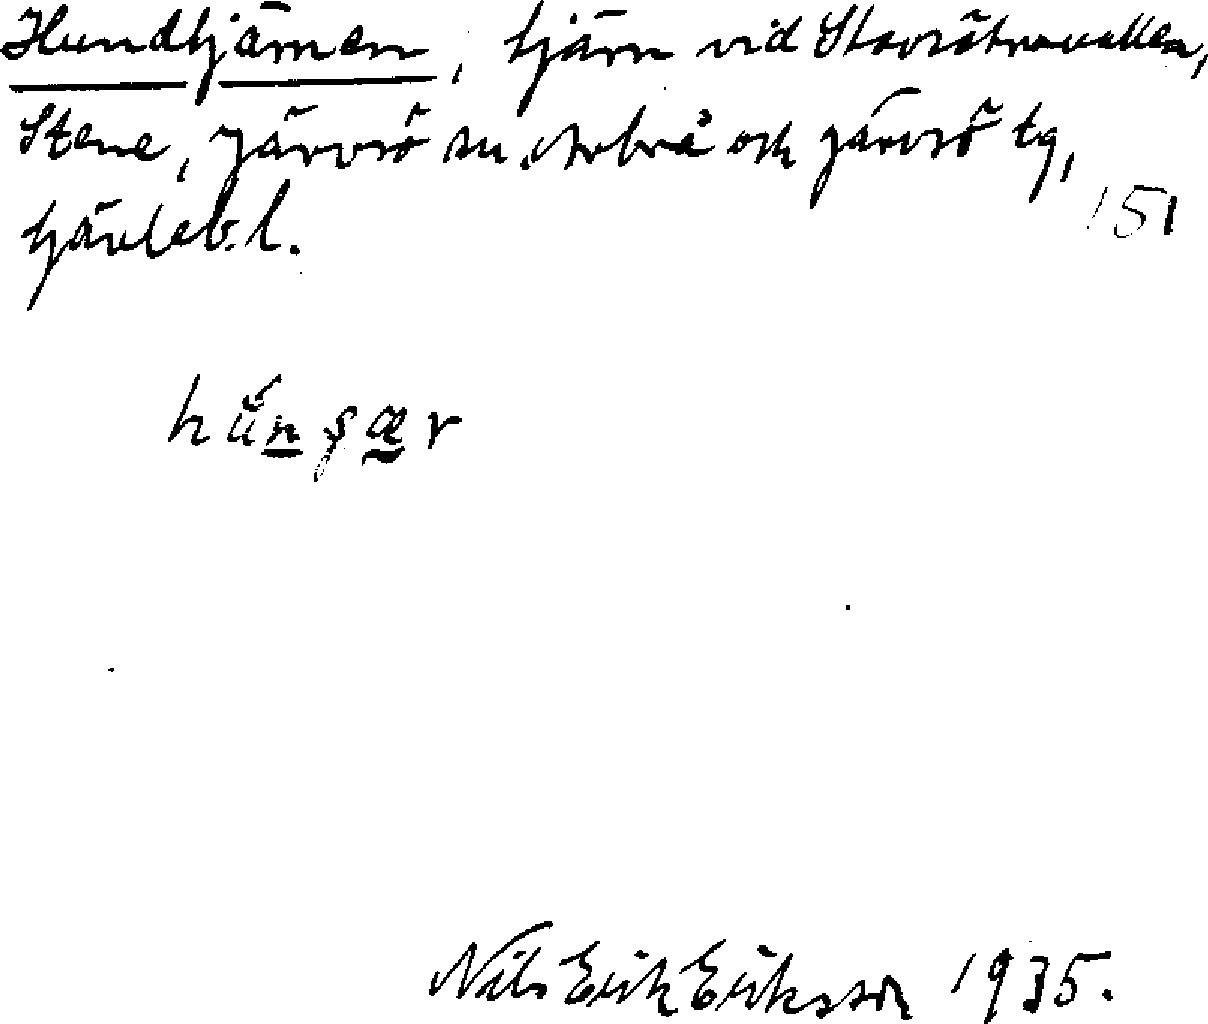 Hundtjärnen, tjärn vid Storsätravallen,
Stene, Järvsö sn, Arbrå och Järvsö tg,
Gävleb. l.
151
hún̲şæ̲r
Nils Erik Eriksson 1935.